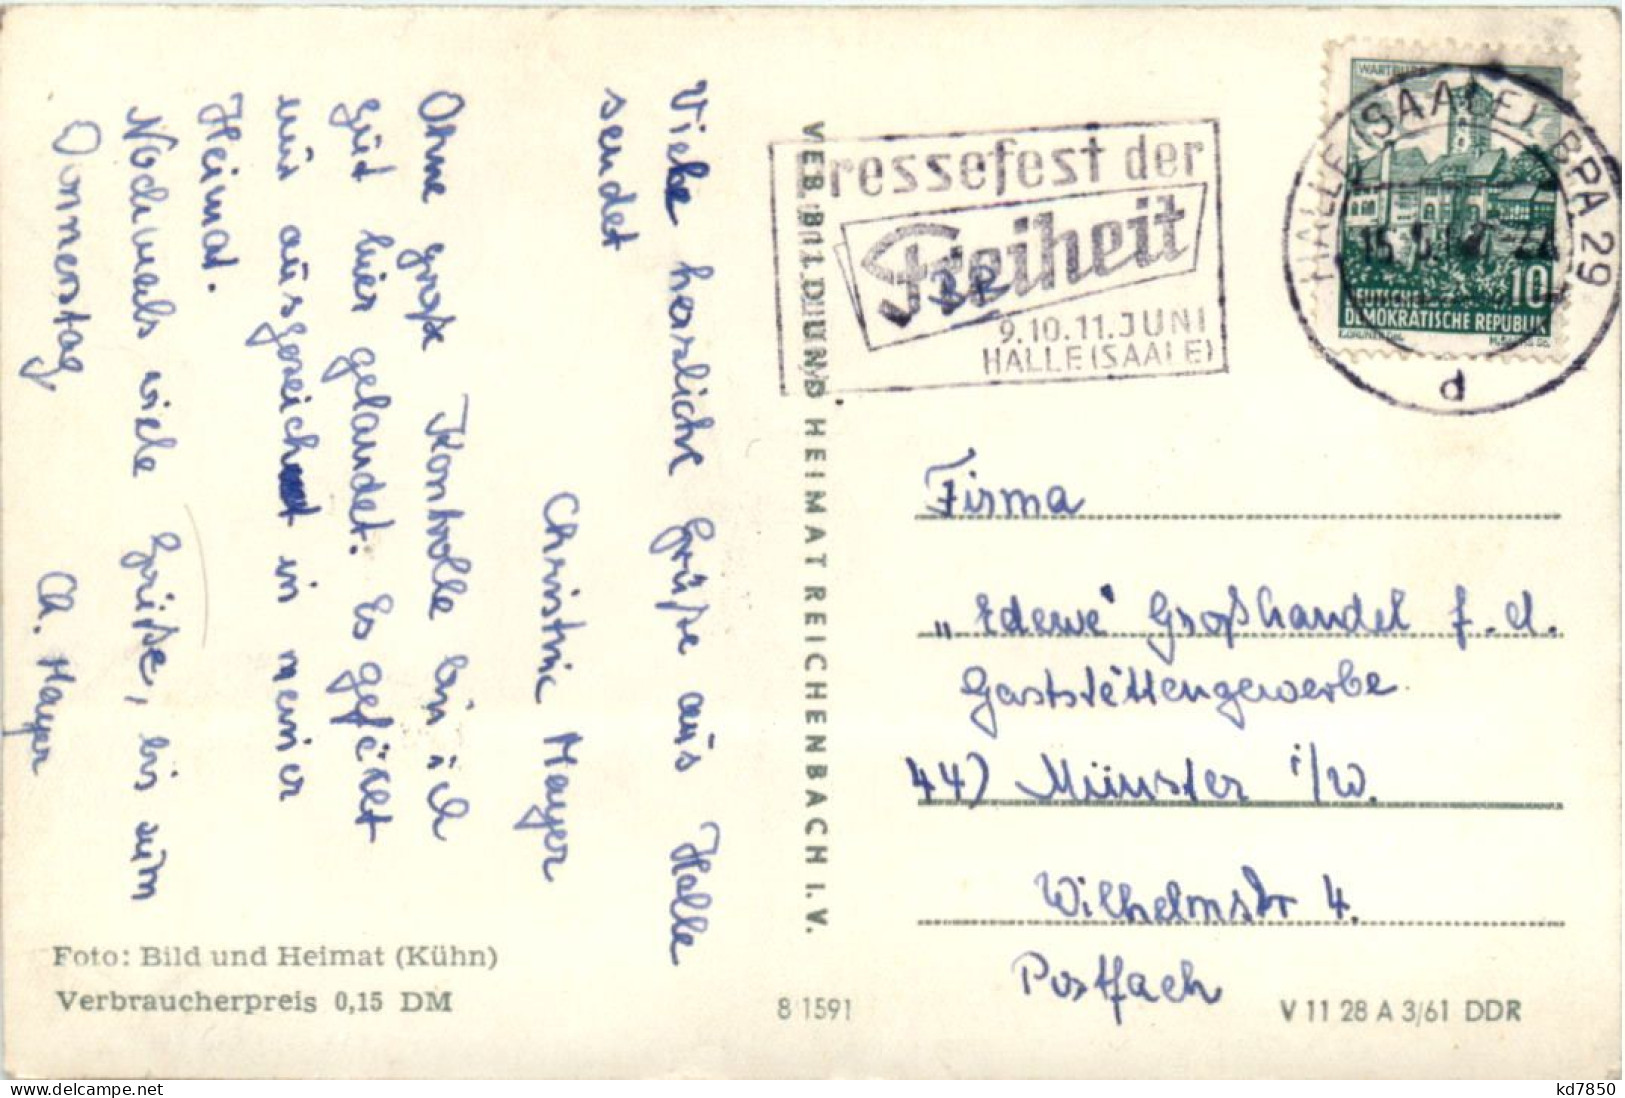 Viele herzliche Grüße aus Halle
sendet
Christine Mayer
Ohne große Kontrolle bin ich
gut hier gelandet. Es gefällt
mir ausgereichnet in meiner
Heimat.
Nochmals viele Grüße, bis zum
Donnerstag
Ch. Mayer
Foto: Bild und Heimat (Kühn)
Verbraucherpreis 0,15 DM
VEB BILD UND HEIMAT REICHENBACH I. V.
8 1591
Pressefest der
Freiheit
9.10.11.JUNI
HALLE (SAALE)
HALLE (SAALE) BPA 29
d
WARTBURG
10
DEUTSCHE
DEMOKRATISCHE REPUBLIK
Firma
„Edewe" Großhandel f. d.
Gaststättengewerbe
44) Münster i/W.
Wilhelmstr 4.
Postfach
V 11 28 A 3/61 DDR
delcampe.net
kd7850